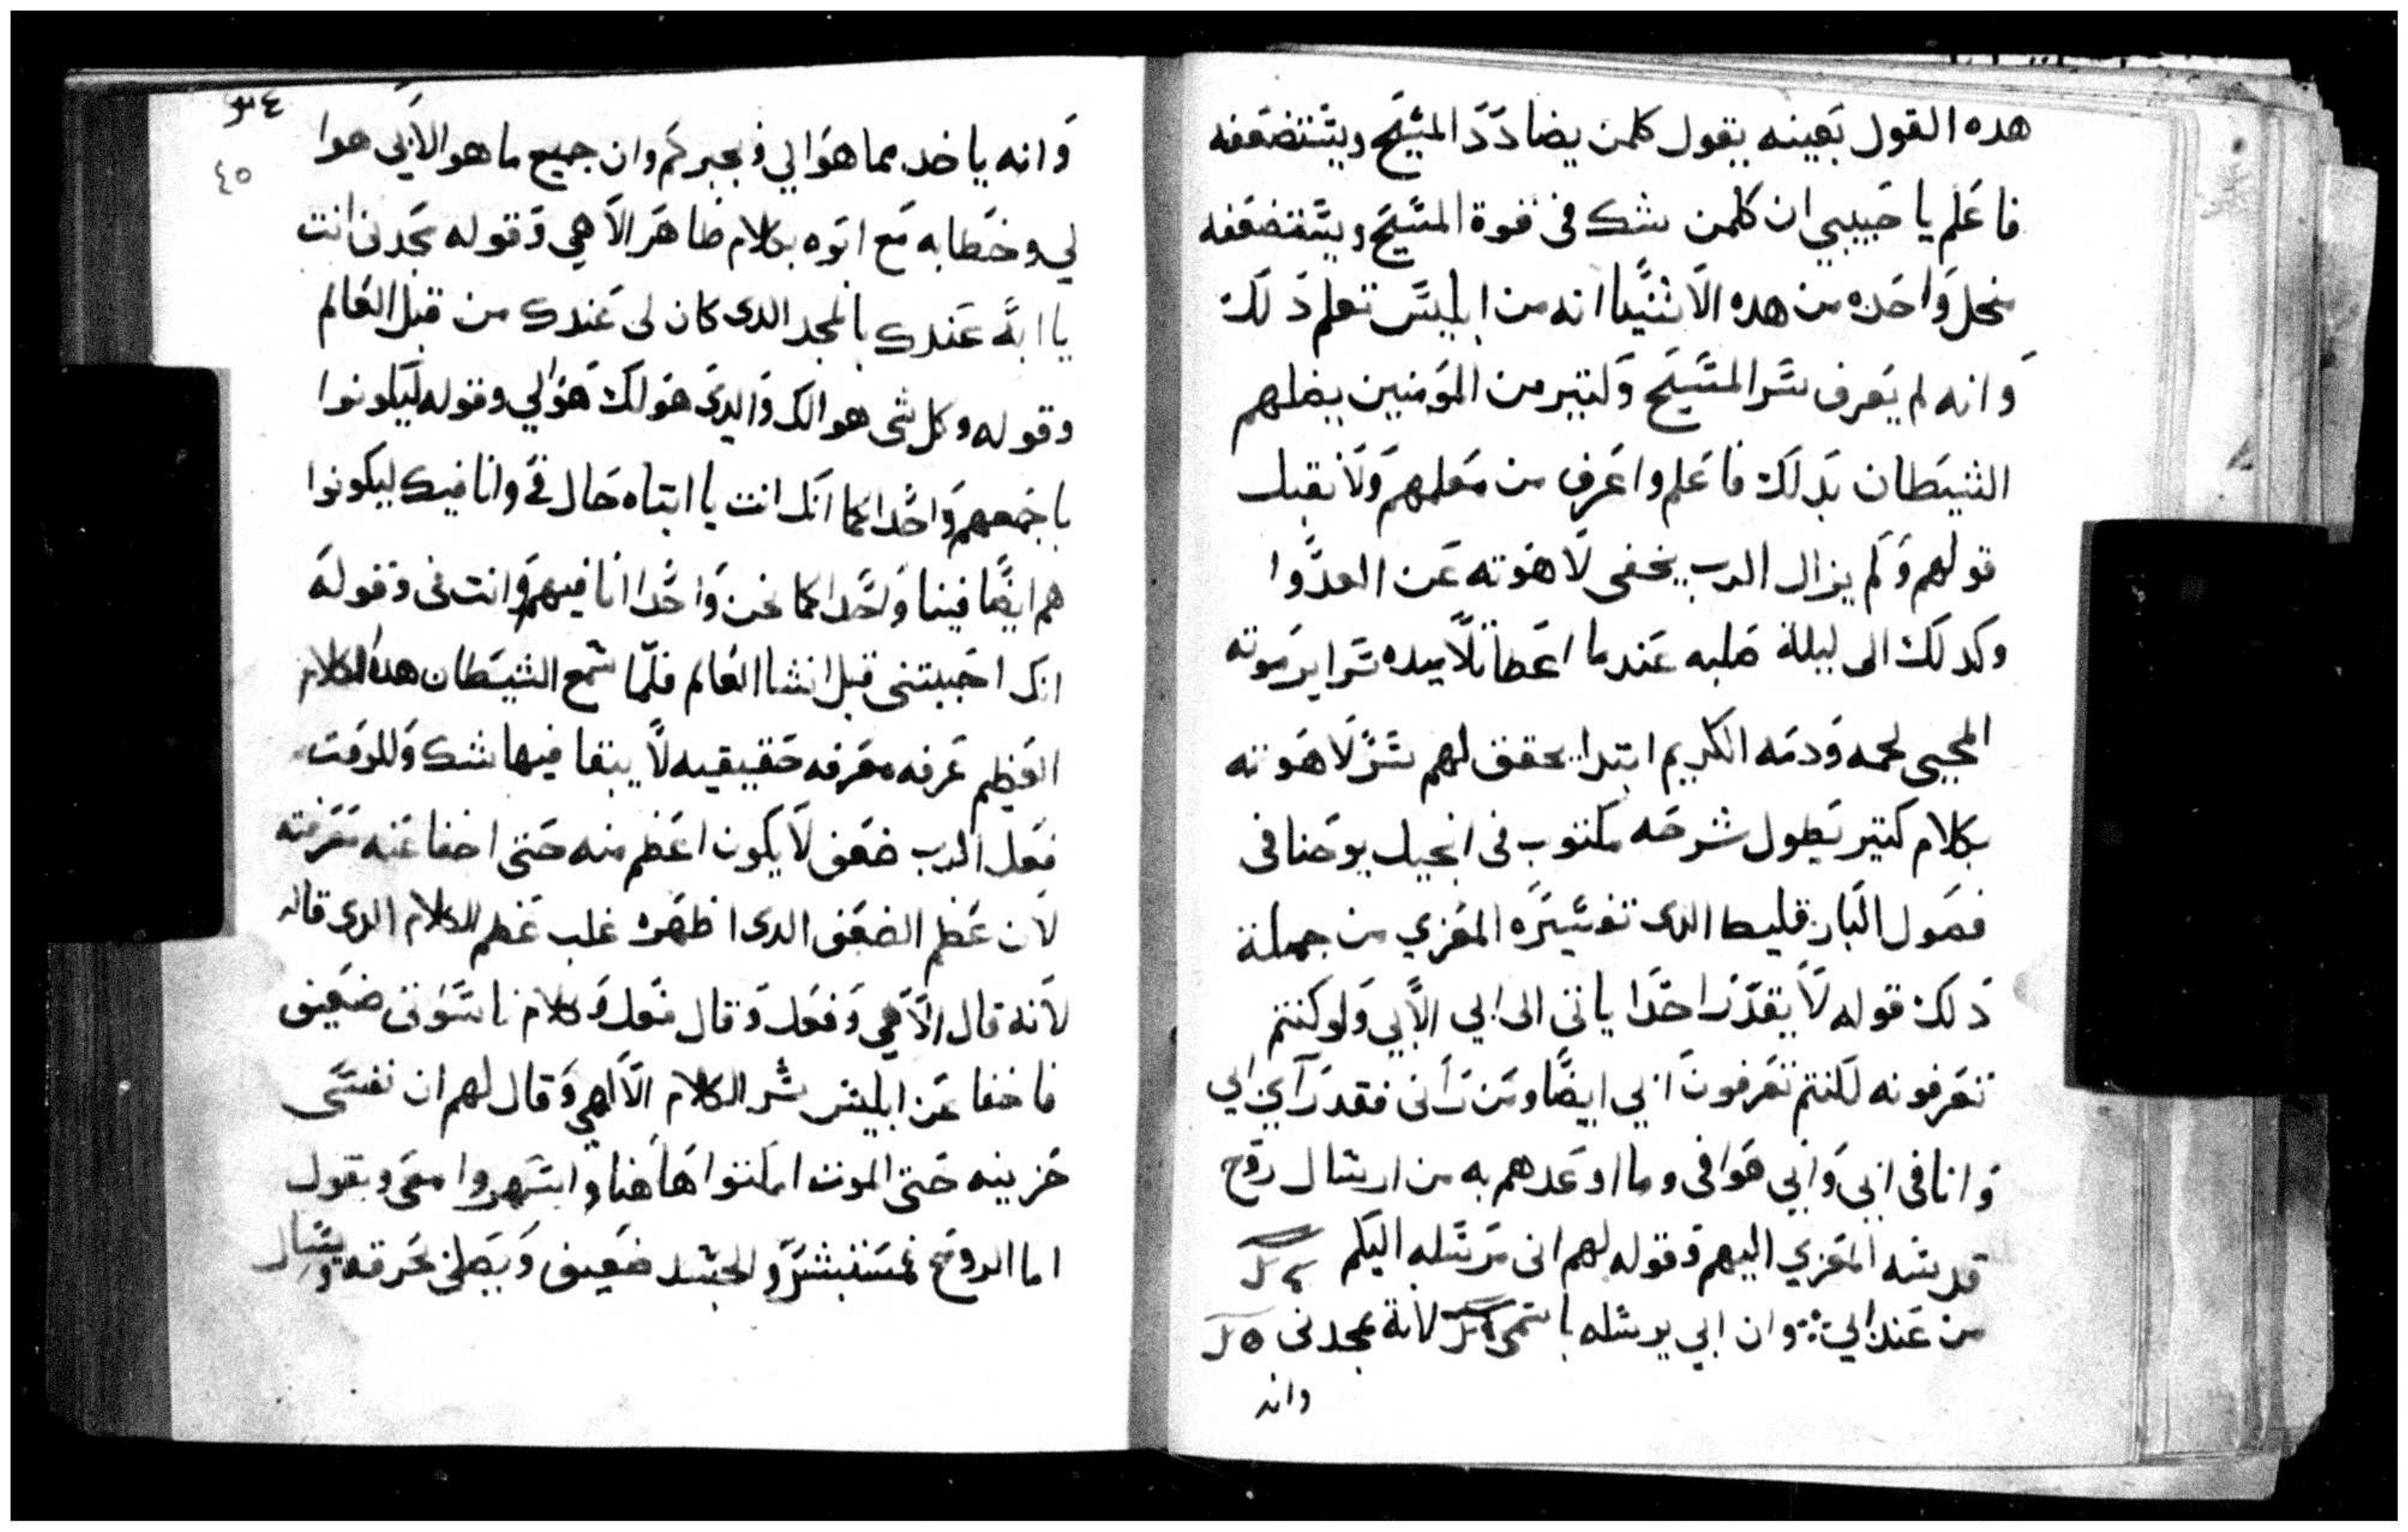 هده القول بعينه يقول كلمن يضادد المسيح ويستضعفه
فاعلم يا حبيبي ان كلمن شك في قوة المسيح ويستضعفه
واحده من هده الاشيا انه من ابليس تعلم دلك
وانه لم يعرف سر المسيح وكتير من المومنين يضلهم
الشيطان بدلك فاعلم واعرف من معلمهم ولا تقبل
قولهم ولم يزال الرب يخفى لاهوته عن العدوا
وكدلك الى ليلة صلبه عندما اعطا تلاميده سراير موته
المحيي لحمه ودمه الكريم ابتدا يحقق لهم سر لاهوته
بكلام كتير يطول شرحه مكتوب في انجيل يوحنا في
فصول البارقليط الدى تفسيره المعزي من جملة
دلك قوله لا يقدر احدا ياتي الى ابي الا بي ولو كنتم
تعرفونه لكنتم تعرفون ابي ايضا ومن راني فقد راي ابي
وانا في ابي وابي هوا في وما اوعدهم به من ارسال روح
قدسه المعزي اليهم وقوله لهم انى مرسله اليكم
من عند ابي وان ابي يرسله باسمى لانه يمجدنى
وانه
٤٥
وانه ياخد مما هوا لي ويخبركم وان جميع ما هو لابي هوا
لي وخطابه مع ابوه بكلام ظاهر الاهي وقوله مجدنى انت
يا ابه عندك بالمجد الدى كان لى عندك من قبل العالم
وقوله وكل شى هوا لك والدى هوا لك هوا لي وقوله ليكونوا
باجمعهم واحدا كما انك انت يا ابتاه حال في وانا فيك ليكونوا
هم ايضا فينا واحدا كما نحن واحدا انا فيهم وانت فى وقوله
انك احببتنى قبل انشا العالم فلما سمع الشيطان هدا الكلام
العظيم عرفه معرفه حقيقيه لا يبقا فيها شك وللوقت
فعل الرب ضعف لا يكون اعظم منه حتى اخفا عنه معرفته
لان عظم الضعف الدى اظهره غلب عظم الكلام الدى قاله
لانه قال الاهي وفعل وقال فعل وكلام ناسوتى ضعيف
فاخفا عن ابليس سر الكلام الالهي وقال لهم ان نفسى
حزينه حتى الموت امكتوا هاهنا واسهروا معى ويقول
اما الروح فمستبشر والجسد ضعيف ويصلى بحرقه ويسال